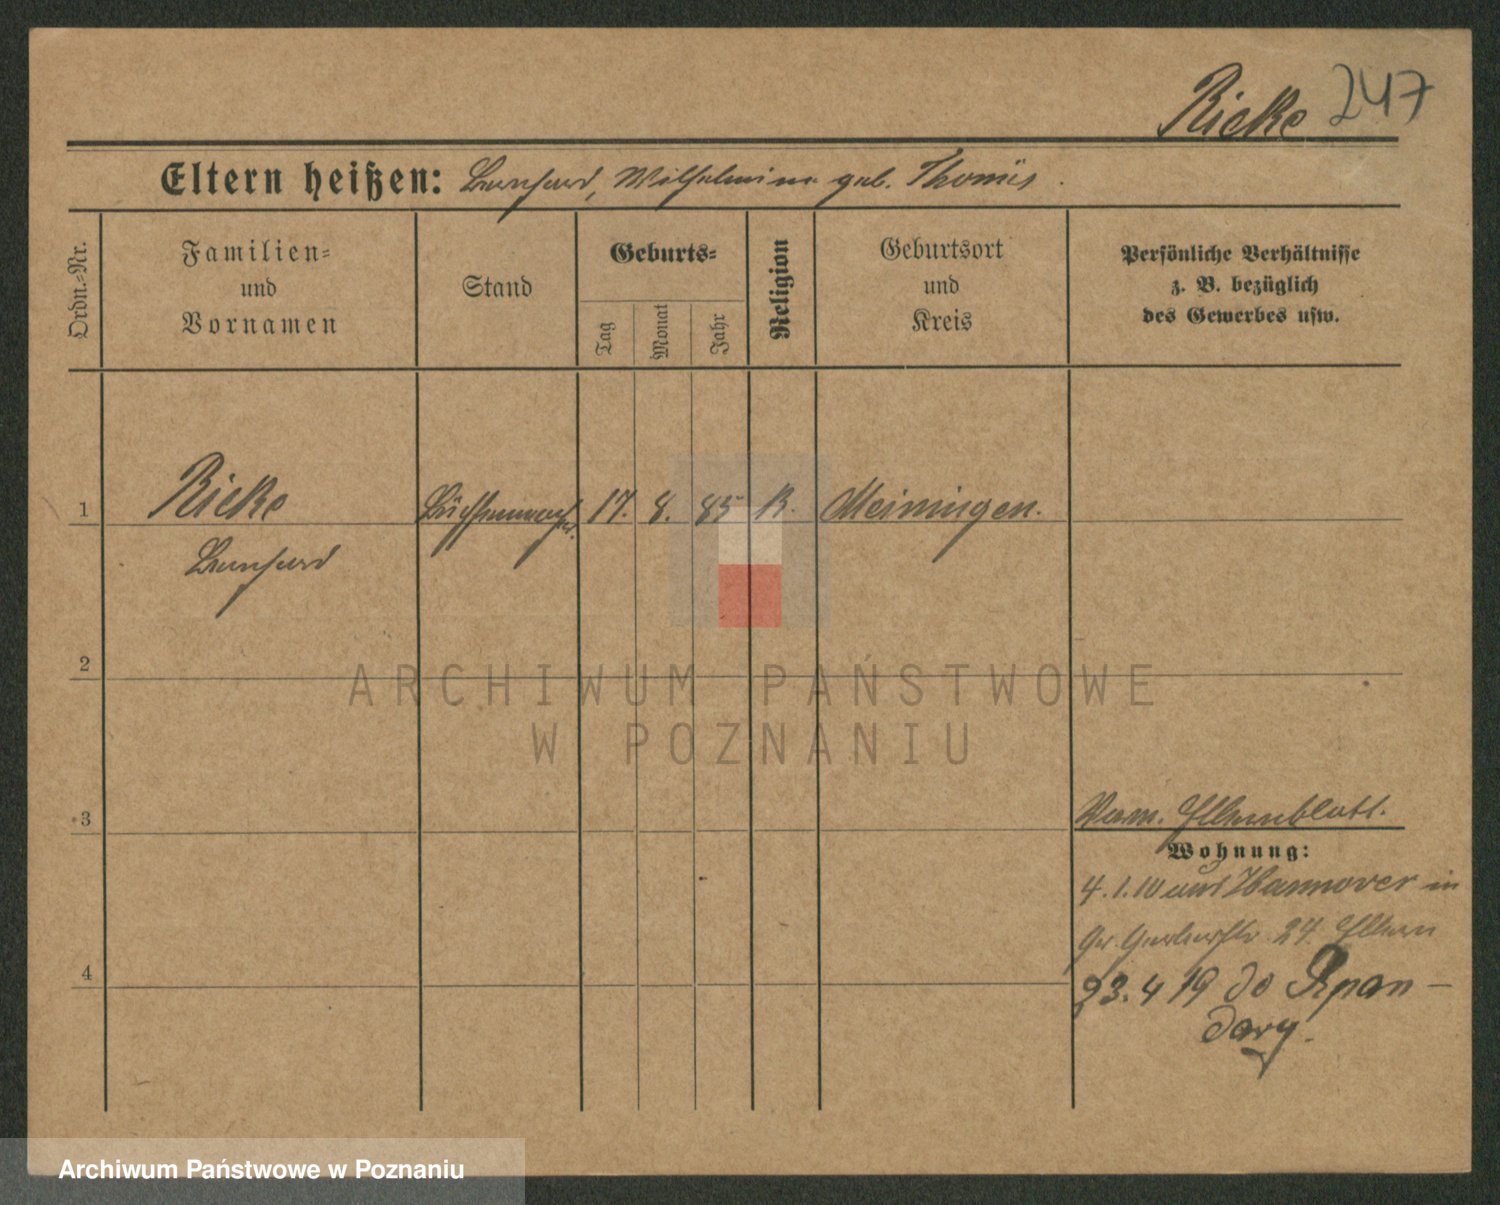 Ricke 247
Eltern heißen: Bernhard, Wilhelmine geb. Thomüs.
Ordn.-Nr.
Familien-
und
Vornamen
Stand
Geburts-
Tag
Monat
Jahr
Religion
Geburtsort
und
Kreis
Persönliche Verhältnisse
z. B. bezüglich
des Gewerbes usw.
1 Ricke Büchsenmach 17. 8. 85 K. Meiningen.
Bernhard
2
ARCHIWUM PAŃSTWOWE
W POZNANIU
3
Elternblatt.
Wohnung:
4.1.10 aus Hannover in
Gr. Gerberstr 24. Eltern
4
23.4 19 do Span-
dary.
Archiwum Państwowe w Poznaniu